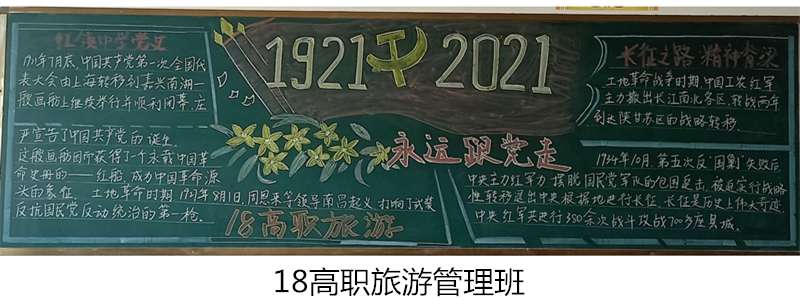 红领巾学党史
1921年7月底,中国共产党第一次全国代
表大会由上海转移到嘉兴南湖一
般画舫上继续举行并顺利闭幕,庄
严宣告了中国共产党的诞生。
这艘画舫因所获得了一个永载中国革
命史册的——红船,成为中国革命源
头的象征。土地革命时期1927年8月1日,周恩来等领导南昌起义,打响了武装
反抗国民党反动统治的第一枪。
1921
2021
永远跟党走
18高职旅游
长征之路 精神脊梁
土地革命战争时期,中国工农红军
主力撤出长江南北各区,转战两年
到达陕甘苏区的战略转移。
1934年10月,第五次反"围剿"失败后,
中央主力红军为摆脱国民党军队的包围追击,被迫实行战略
性转移退出中央根据地进行长征。长征是历史上伟大奇迹,
中央红军共进行380余次战斗攻战700多座县城。
18高职旅游管理班